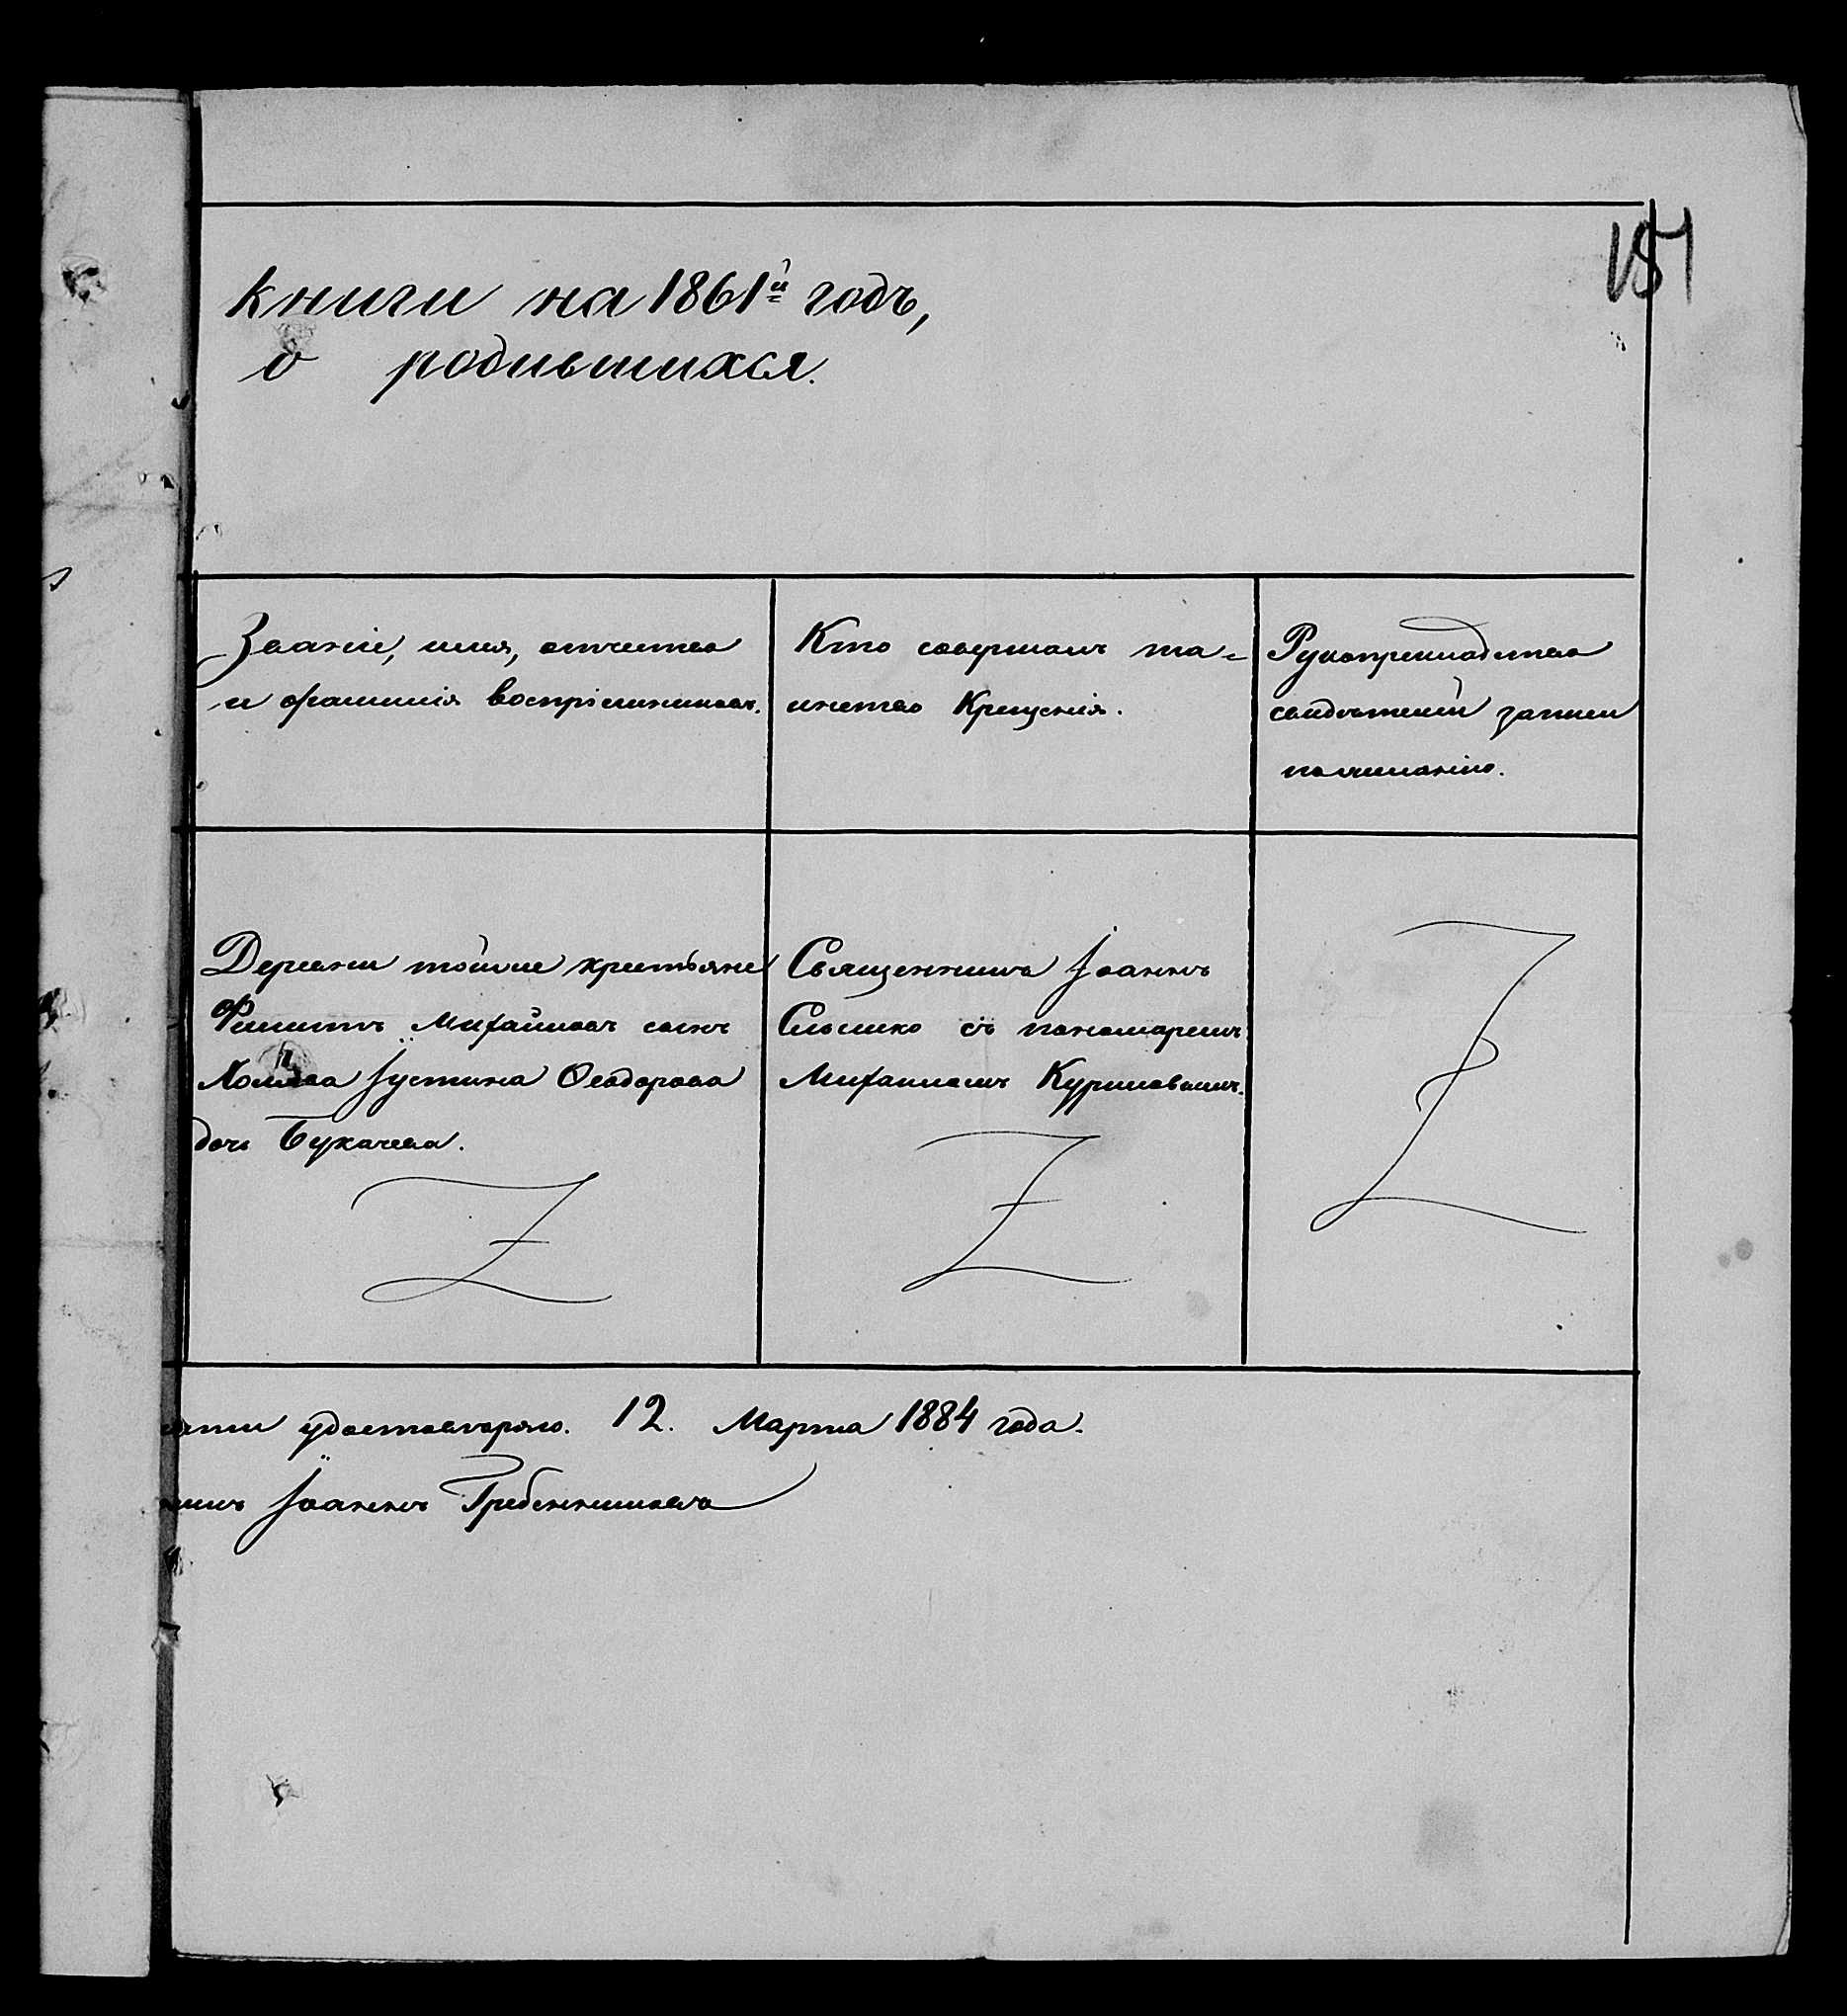 151
книги на 1861й годъ,
о родившихся.
Званіе, имя, отчество
и фамилія воспріемниковъ.
Кто совершалъ та-
инство Крещенія.
Рукоприкладство
свидѣтелей записи
по желанію.
Деревни тойже крестьяне
Филиппъ Михайловъ сынъ
Іустина Ѳеодорова
дочь Букачева.
Священникъ Іоаннъ
съ пономаремъ
Михаиломъ Куриловымъ.
удостовѣряю. 12. Марта 1884 года.
Іоаннъ Гребенниковъ